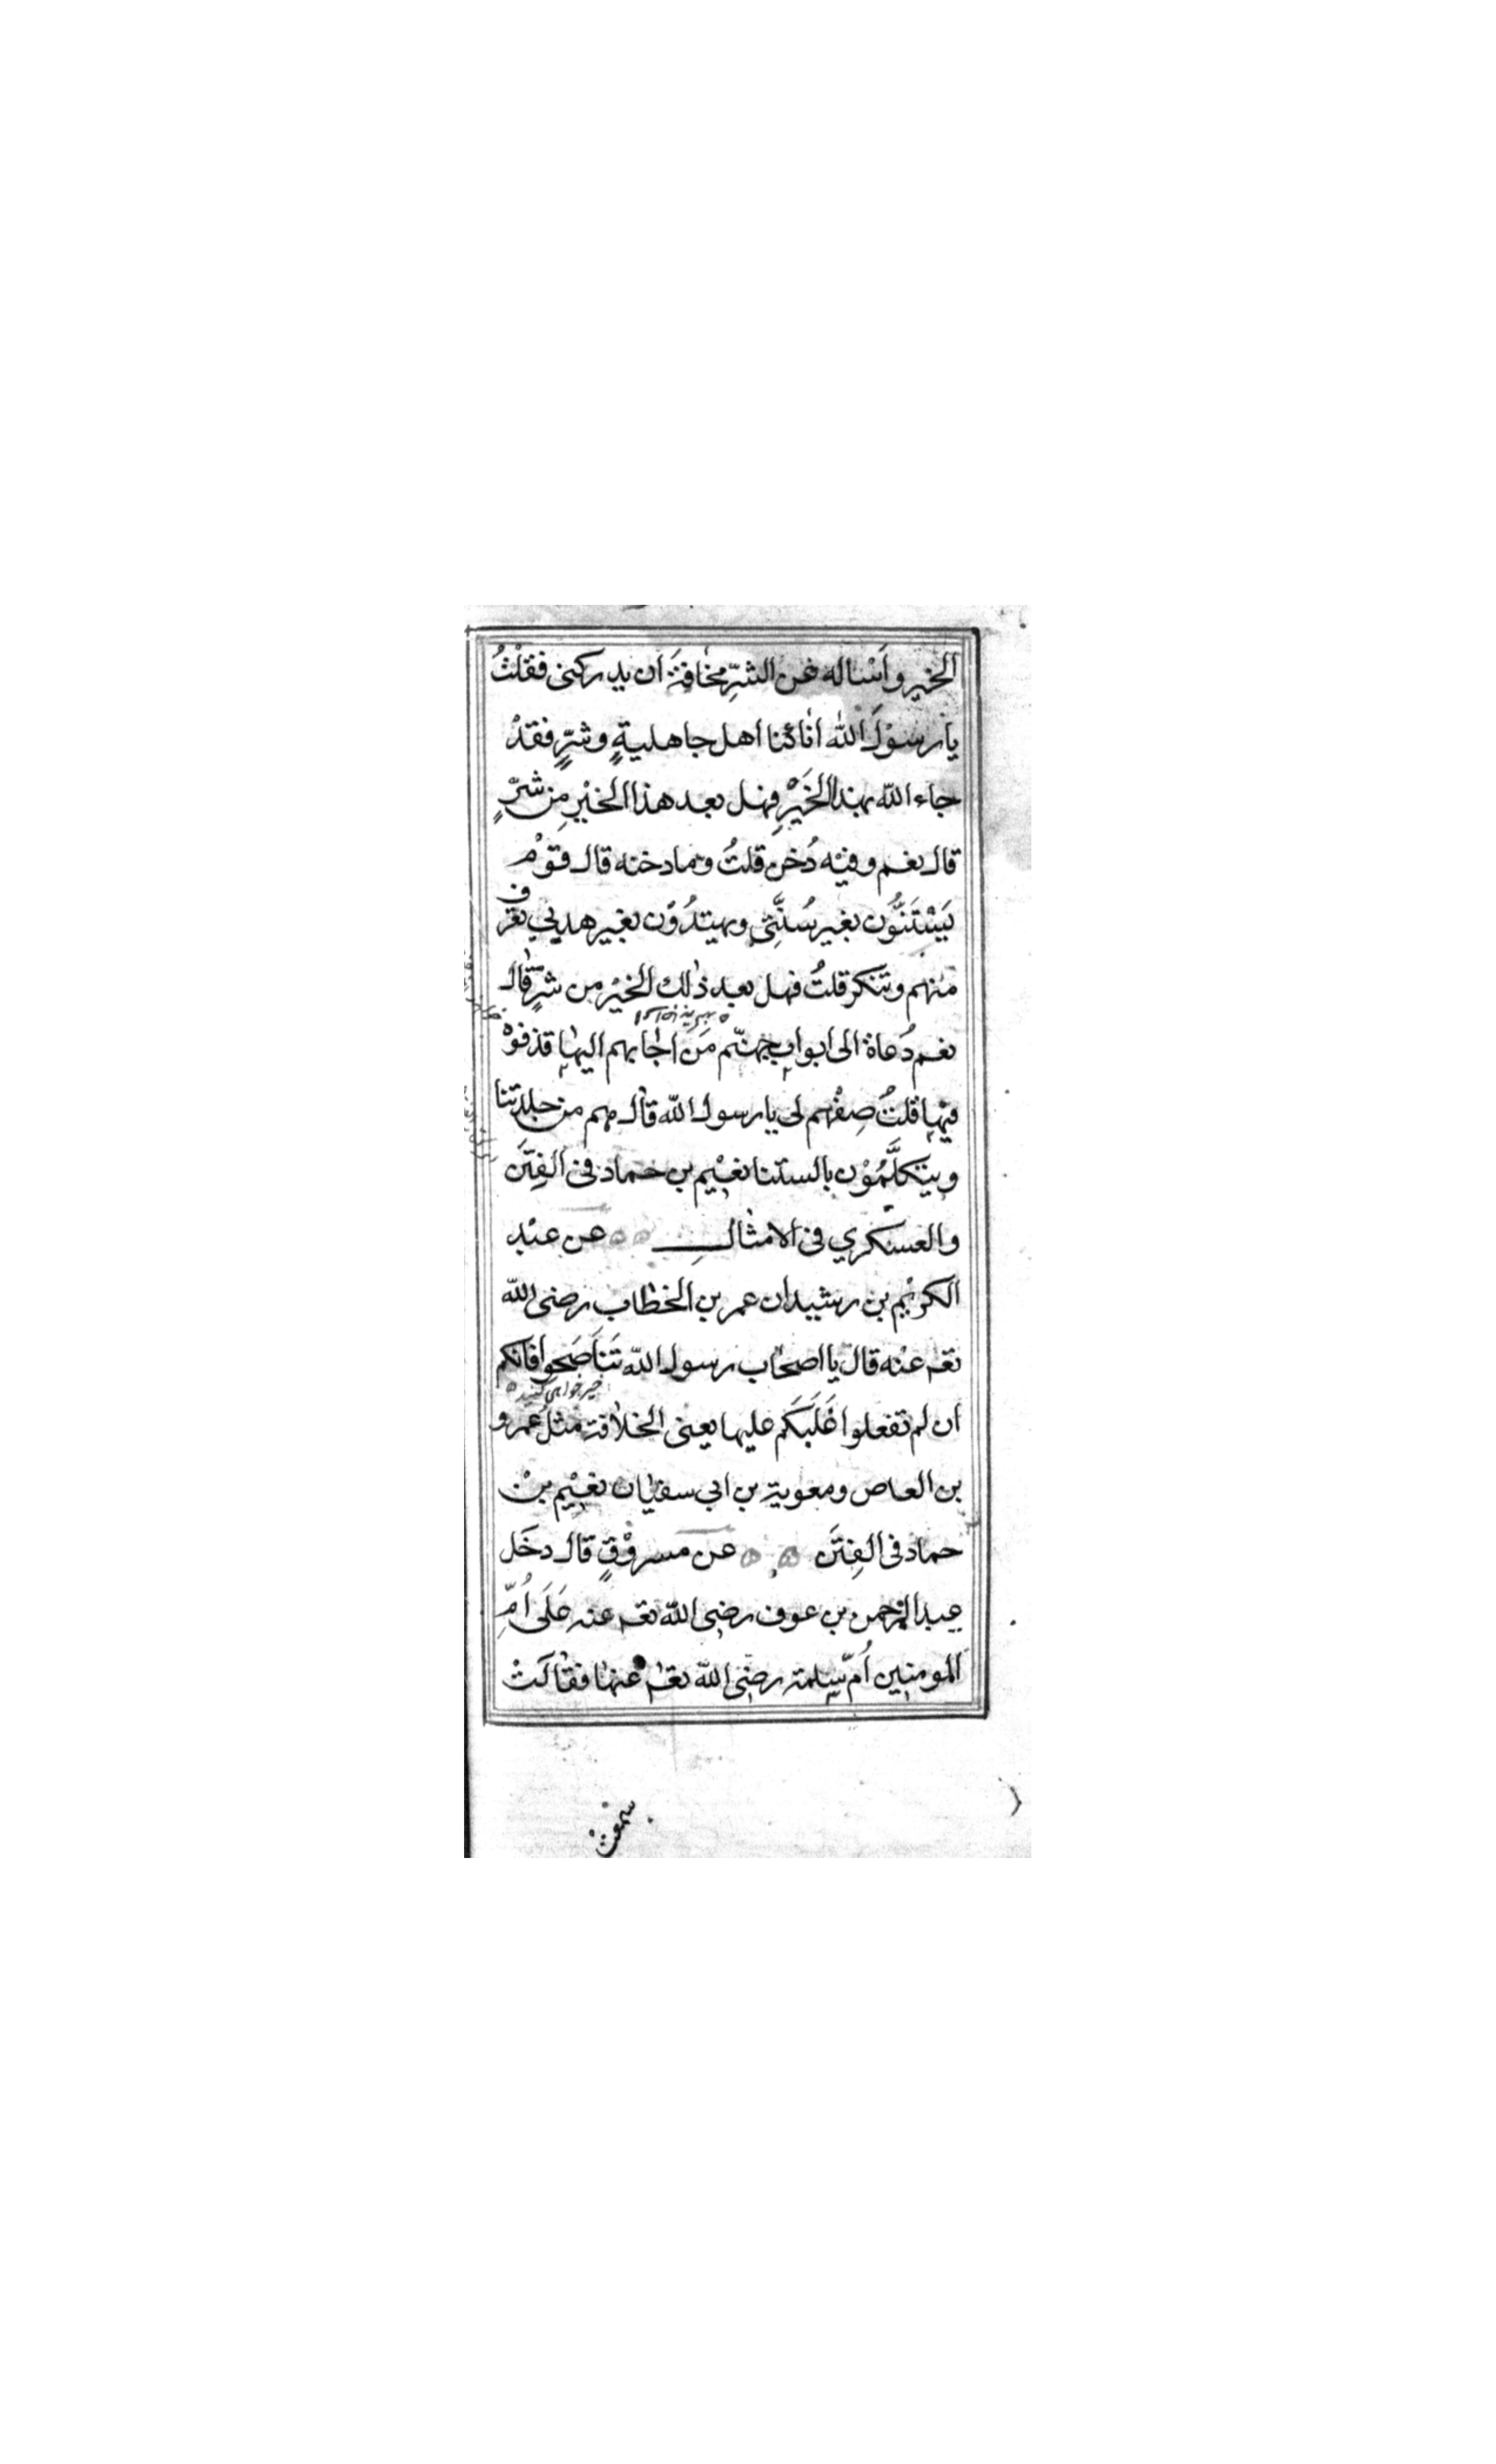 الخير واَسْاله عن الشرِّ مخافةَ ان يدركنى فقلْتُ
يا رسوْلَ الله انا كُنا اهل جاهليةٍ وشرٍّ فقدْ
جاء الله بهذا الخَيْرِ فهل بعد هذا الخيْرِ مِن شرٍّ
قال نعم وفيْه دُخن قلتُ وما دخنه قال قوْم
يَسْتَنُّون بغير سُنَّتِى ويهتدُوْن بغير هديي تعْرف
منهم وتنكر قلتُ فهل بعد ذلك الخيْر من شرٍّ قال
نعم دُعاة الى ابواب جهنّم مَن اجابهم اليها قذفوْه
فيْها قلتُ صِفْهم لى يا رسول الله قال هم من جلدتنا
ويتكلَّمُوْن بالسنتنا نعيْم بن حماد فى الفِتَن
والعسكري فى الامثال عن عبْد
الكريْم بن رشيد ان عمر بن الخطاب رضى الله
تعم عنْه قال يا اصحاب رسول الله تَنَاصَحوا فانكم
خير خواهى كنيد
ان لم تفعلوا غَلَبَكم عليها يعنى الخلافة مثلُ عمرو
بن العاص ومعوية بن ابي سفيان نعيْم بنْ
حماد فى الفِتَن عن مسروْقٍ قال دخَل
عبد الرحمن بن عوف رضى الله تعم عنه عَلَى اُمِّ
المومنين اُمّ سلمة رضى الله تعم عنها فقالَتْ
سمعْتُ